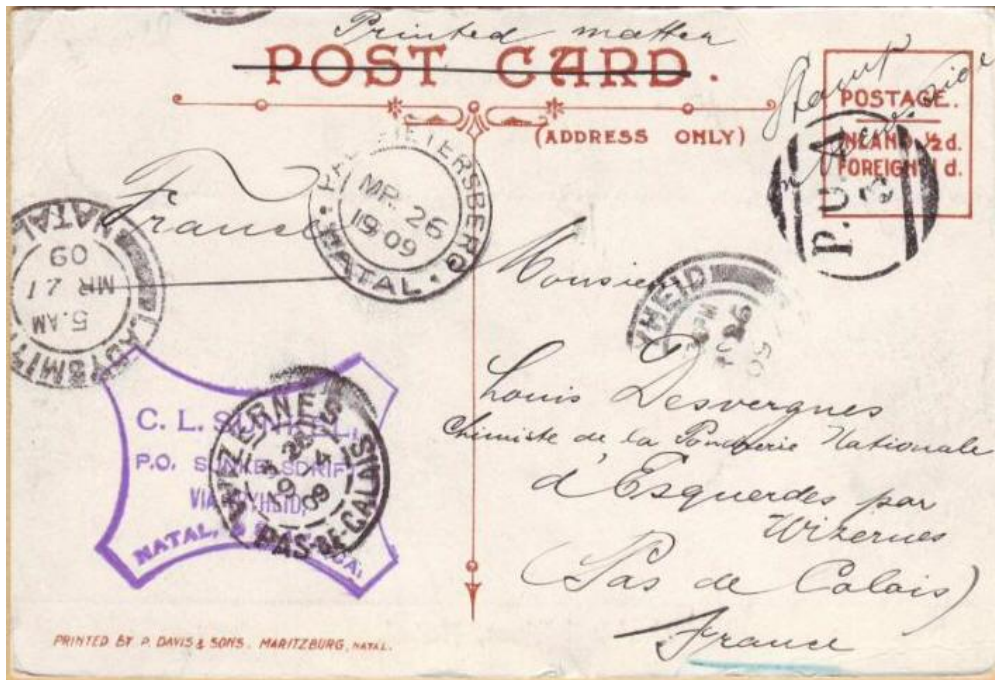 Printed matter
POST CARD.
(ADDRESS ONLY)
Stamp
POSTAGE.
INLAND ½d.
FOREIGN 1d.
P.U.A
3
France
PAULPIETERSBERG
MR 26
1909
NATAL
LADYSMITH
5. AM
MR 27
09
NATAL
YHEID
PM
09
C. L.
P.O. SUNKELSDRIFT
VIA VRYHEID,
NATAL,
WIZERNES
09
PAS-DE-CALAIS
Monsieur
Louis Desvergnes
Chimiste de la Poudrerie Nationale
d'Esquerdes par
Wizernes
(Pas de Calais)
France
PRINTED BY P. DAVIS & SONS. MARITZBURG, NATAL.